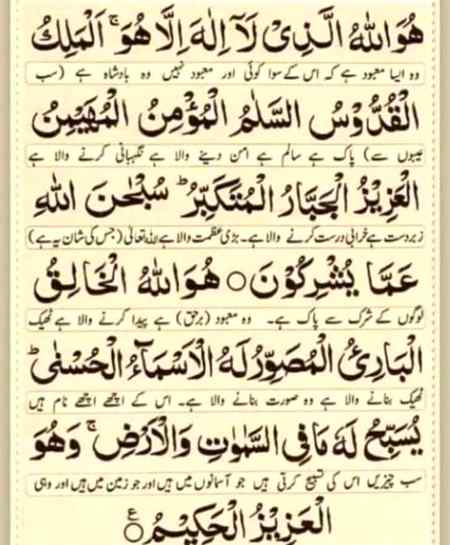 هُوَ اللّٰهُ الَّذِیْ لَاۤ اِلٰهَ اِلَّا هُوَ ۚ اَلْمَلِكُ
وہ ایسا معبود ہے کہ اس کے سوا کوئی اور معبود نہیں وہ بادشاہ ہے (سب
الْقُدُّوْسُ السَّلٰمُ الْمُؤْمِنُ الْمُهَیْمِنُ
عیبوں سے) پاک ہے سالم ہے امن دینے والا ہے نگہبانی کرنے والا ہے
الْعَزِیْزُ الْجَبَّارُ الْمُتَكَبِّرُ ؕ سُبْحٰنَ اللّٰهِ
زبردست ہے خرابی درست کرنے والا ہے۔ بڑی عظمت والا ہے اللہ تعالیٰ (جس کی شان یہ ہے)
عَمَّا یُشْرِكُوْنَ ○ هُوَ اللّٰهُ الْخَالِقُ
لوگوں کے شرک سے پاک ہے۔ وہ معبود (برحق) ہے پیدا کرنے والا ہے ٹھیک
الْبَارِئُ الْمُصَوِّرُ لَهُ الْاَسْمَآءُ الْحُسْنٰی ؕ
ٹھیک بنانے والا ہے وہ صورت بنانے والا ہے۔ اس کے اچھے اچھے نام ہیں
یُسَبِّحُ لَهٗ مَا فِی السَّمٰوٰتِ وَالْاَرْضِ ۚ وَهُوَ
سب چیزیں اس کی تسبیح کرتی ہیں جو آسمانوں میں ہیں اور جو زمین میں ہیں اور وہی
الْعَزِیْزُ الْحَكِیْمُ ○ ع